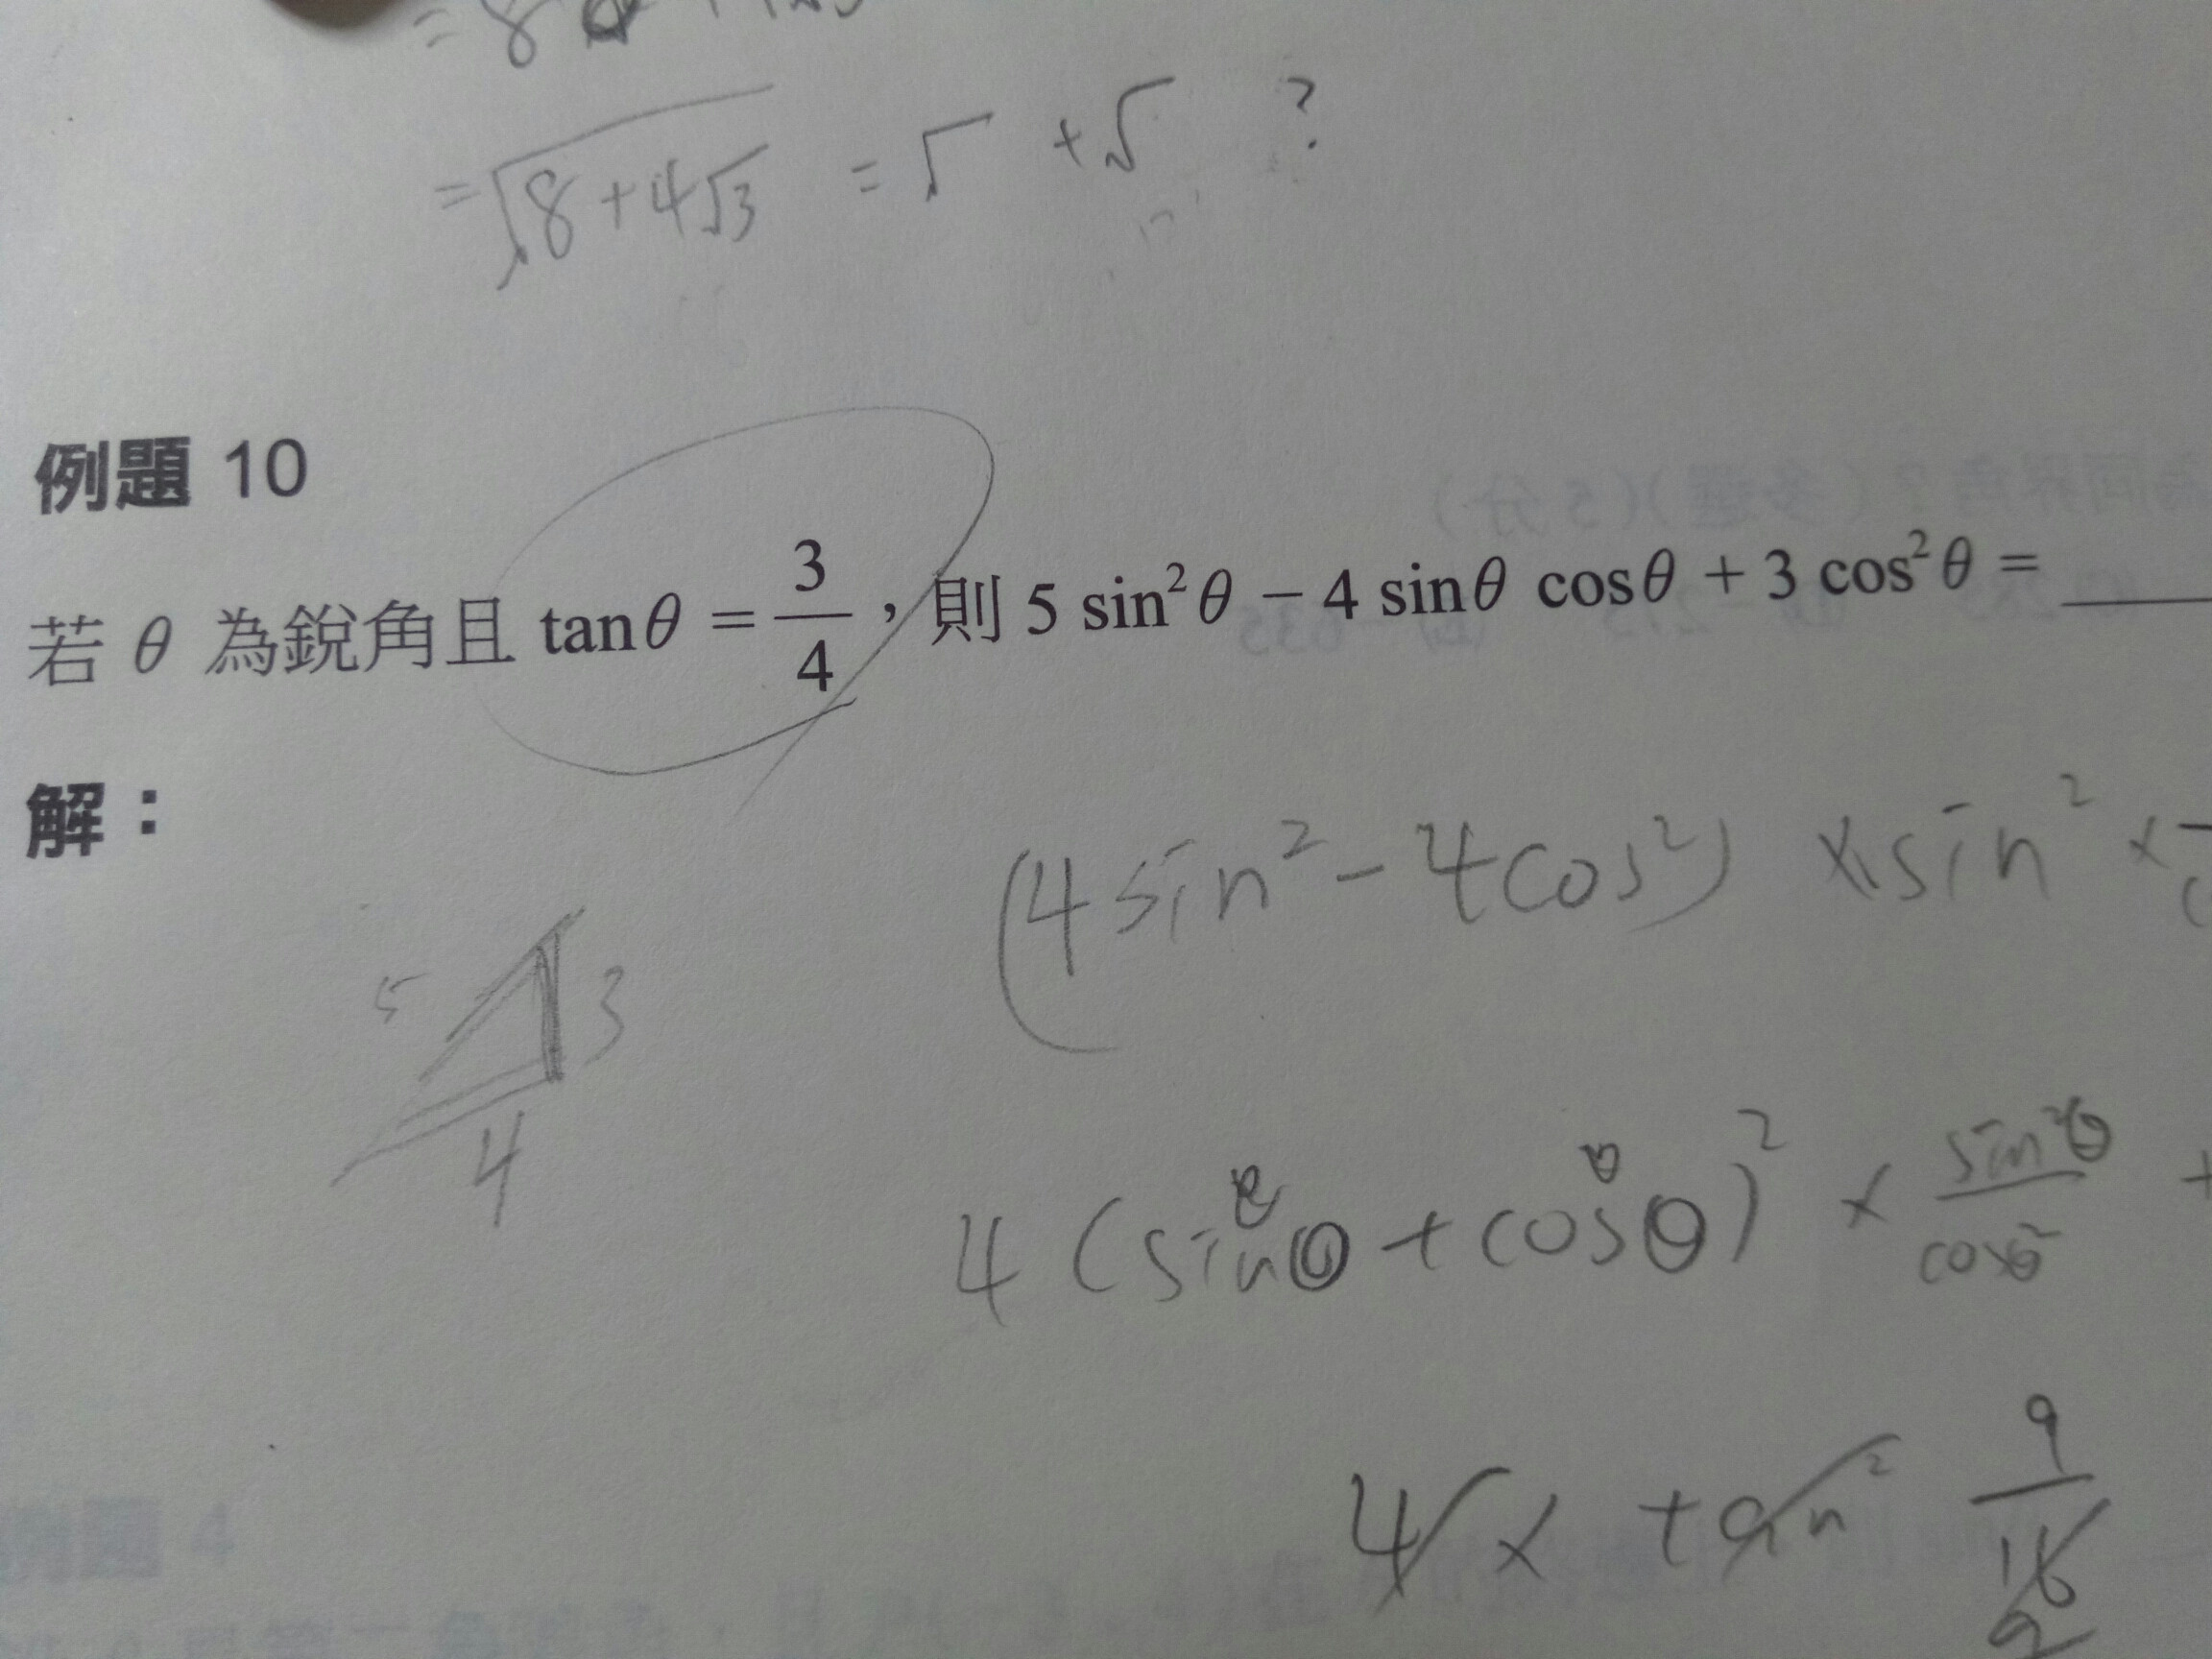 = 8
= √(8+4√3) = √ + √ ?
例題 10
若 θ 為銳角且 tanθ = 3/4，則 5 sin²θ − 4 sinθ cosθ + 3 cos²θ = ____
解：
(4sin² − 4cos²) × sin² ×
5 3
4
4 (sinθ + cosθ)² × sin²θ/cosθ² +
4 × tan² 9/16